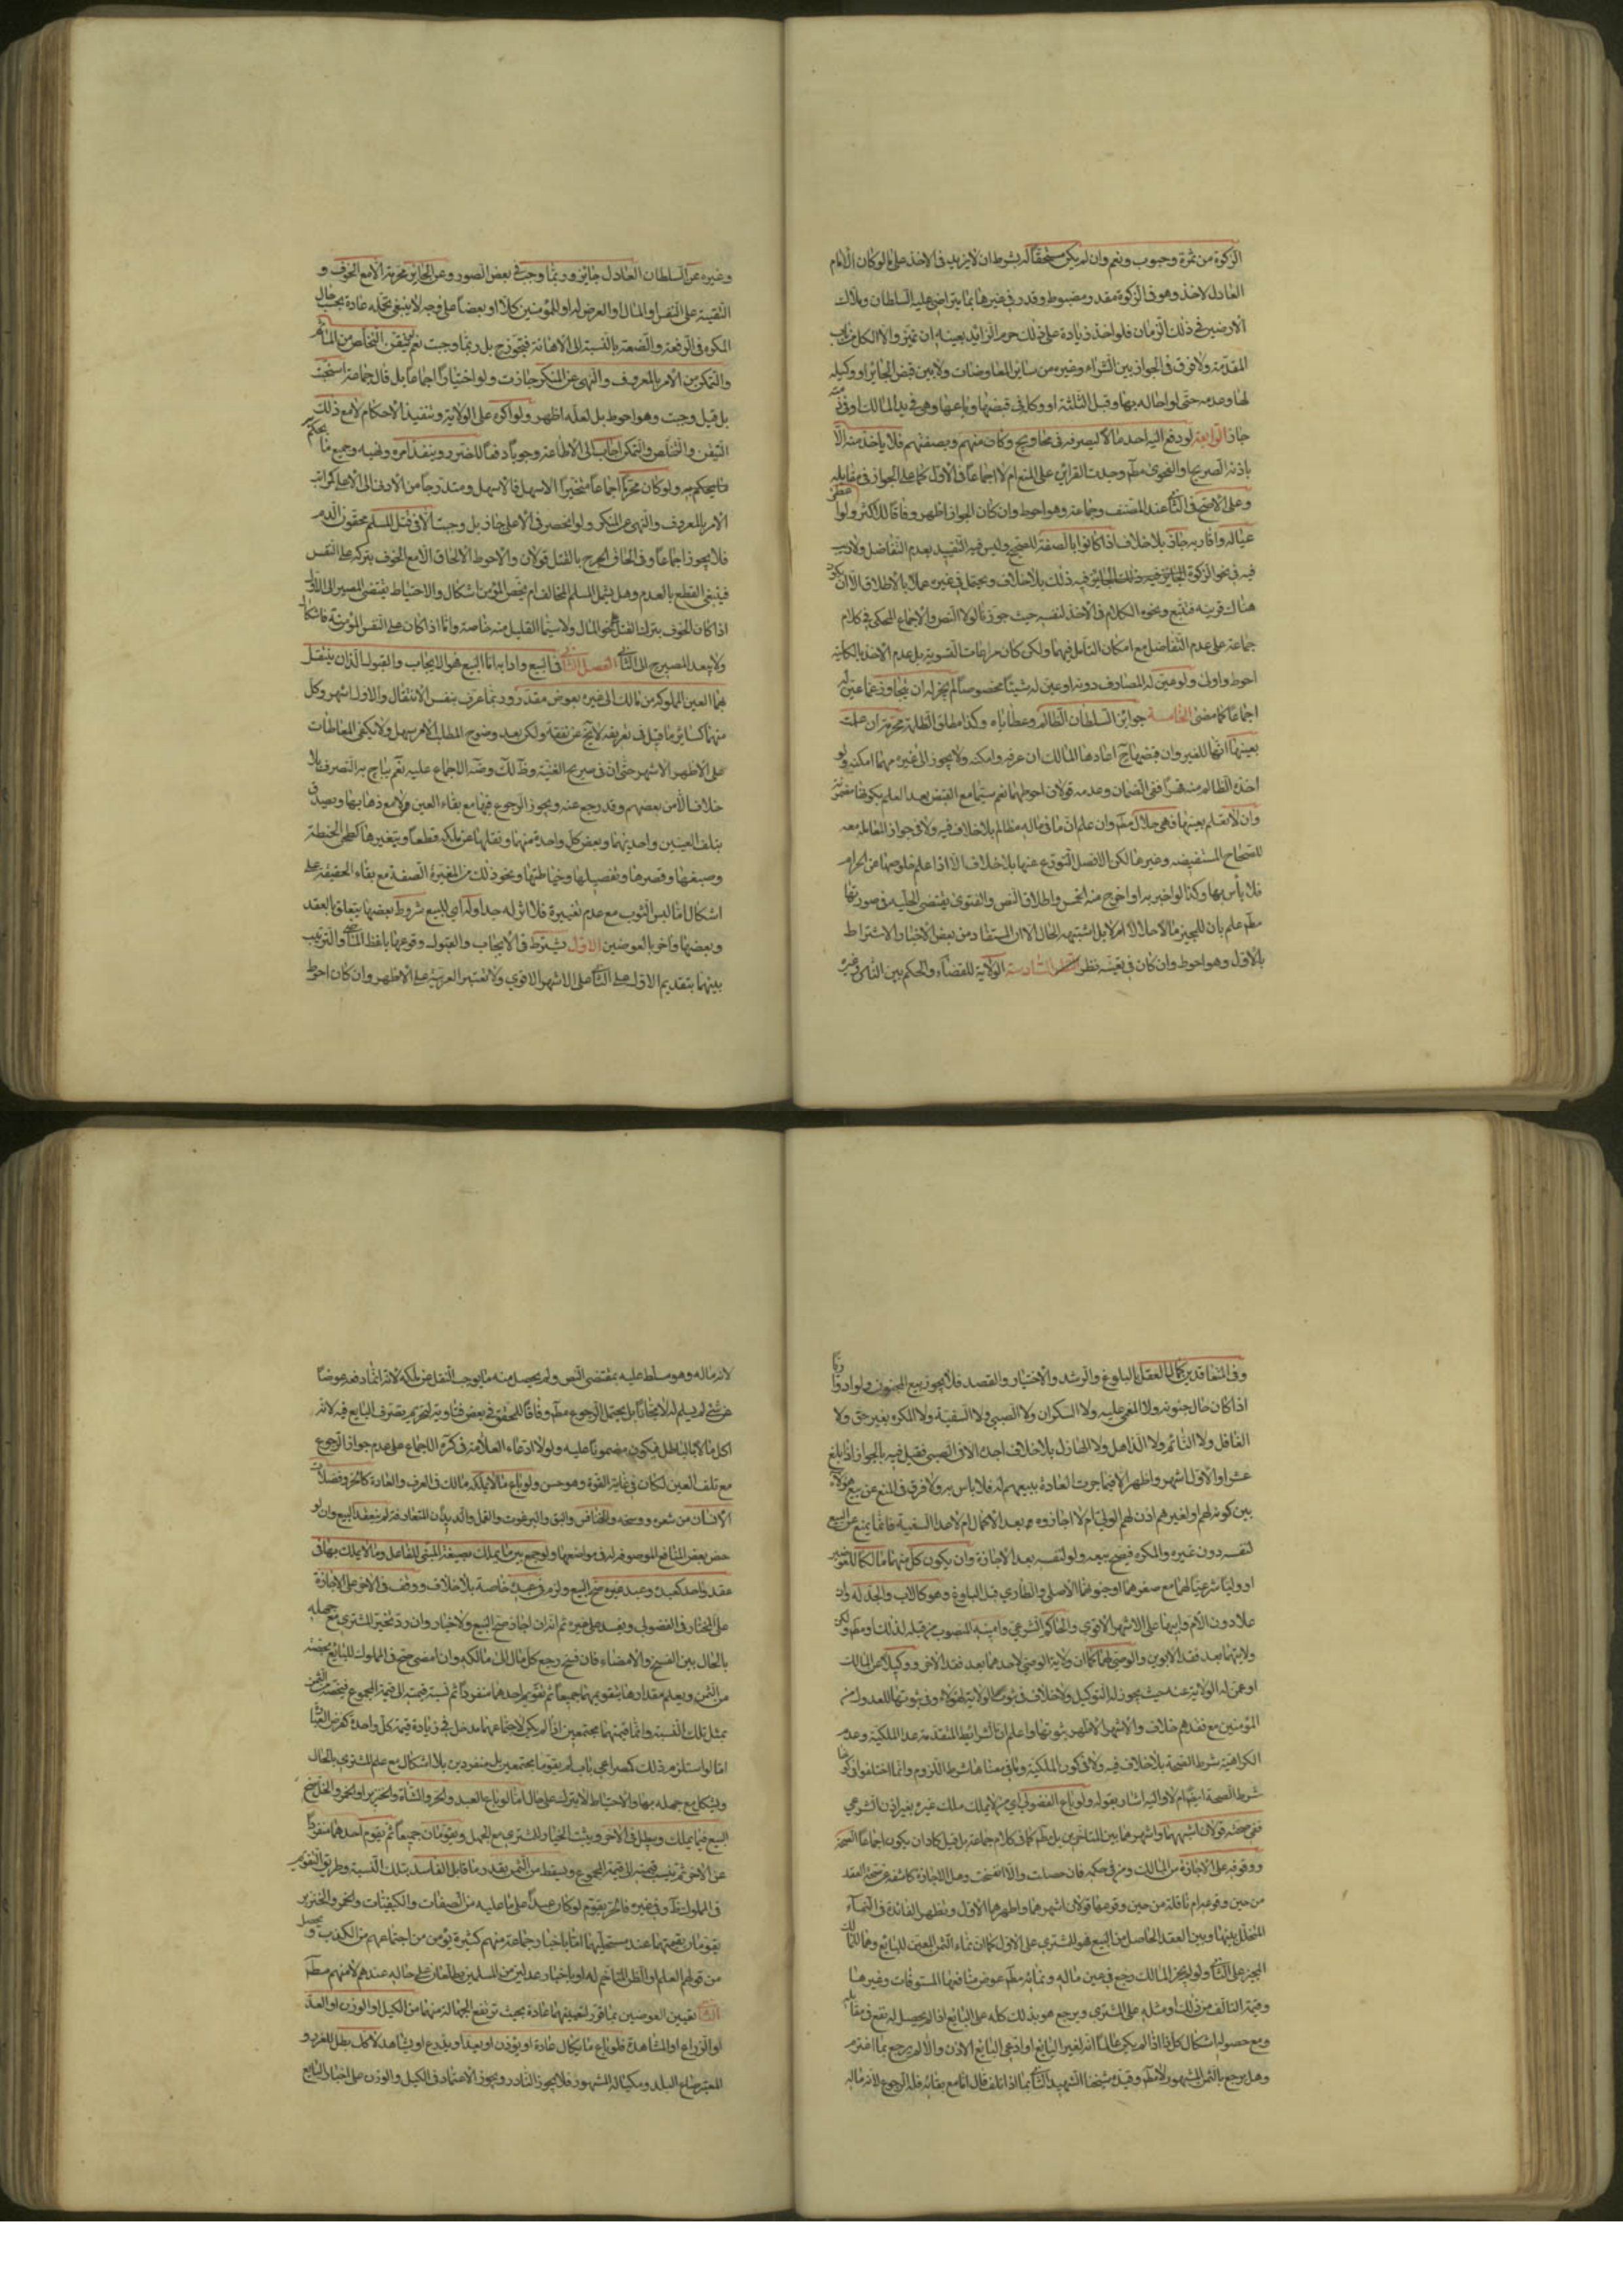 الزكوة من ثمرة وحبوب ونعم وان لم يكن مستحقا له بشرط ان لا يزيد في الاخذ على ما لو كان الامام
العادل لاخذ وهو في الزكوة مقدر ومضبوط وقدر في غيرها بما يتراضى عليه السلطان وملاك
الارضين في ذلك الزمان فلو اخذ زيادة على ذلك حرم الزائد بعينه ان تميز والا الكل من باب
المقدمة ولا فرق في الجواز بين الشراء وغيره من سائر المعاوضات ولا بين قبض الجائر او وكيله
لها وعدمه حتى لو احاله بها وقبل الثلثة او وكله في قبضها او باعها وهي في يد المالك او في ذمته
جاز الرابعة لو دفع اليه احد مالا ليصرفه في محاويج وكان منهم وبصفتهم فلا ياخذ منه الا
باذنه الصريح او الفحوى مطم وجدت القرائن على المنع ام لا اجماعا في الاول كما على الجواز في مقابله
وعلى الاصح في الثاني عند المصنف وجماعة وهو احوط وان كان الجواز اظهر وفاقا للاكثر ولو اعطى
عياله واقاربه جاز بلا خلاف اذا كانوا بالصفة للصحيح وليس فيه التقييد بعدم التفاضل ولا ريب
فيه في نحو الزكوة الجائز فيه ذلك بلا خلاف ويحتمل في غيره عملا بالاطلاق الا ان يكون
هناك قرينة فتتبع ونحوه الكلام في الاخذ لنفسه حيث جوزناه لولا النص والاجماع المحكي في كلام
جماعة على عدم التفاضل مع امكان التامل فيهما ولكن كان مراعات التسوية بل عدم الاخذ بالكلية
احوط واولى ولو عين له المصارف دونه او عين له شيئا مخصوصا لم يجز له ان يتجاوز عما عين له
اجماعا كما مضى الخامسة جوائز السلطان الظالم وعطاياه وكذا مطلق الظلمة محرمة ان علمت
بعينها انها للغير وان قبضها ح اعادها المالك ان عرفه وامكنه ولا يجوز الى غيره مهما امكنه ولو
اخذه الظالم منه قهرا ففي الضمان وعدمه قولان احوطهما نعم سيما مع القبض بعد العلم بكونها مغصوبة
وان لا تعلم بعينها فهي حلال مطم وان علم ان في ماله مظالم بلا خلاف فيه ولا في جواز المعاملة معه
للصحاح المستفيضة وغيرها لكن الافضل التورع عنها بلا خلاف الا اذا علم خلوصها عن الحرام
فلا بأس بها وكذا لو اخبر به او اخرج منه الخمس واطلاق النص والفتوى يقتضي الحلية في صورتها
مطم علم بان للمجيز مالا حلالا ام لا بل اشتبه الحال الا ان المستفاد من بعض الاخبار الاشتراط
بالاول وهو احوط وان كان في تعينه نظر السادسة الولاية للقضاء والحكم بين الناس وغيره
وغيره عن السلطان العادل جائزة وربما وجبت في بعض الصور وعن الجائر محرمة الا مع الخوف و
التقية على النفس او المال او العرض له او للمؤمنين كلا او بعضا على وجه لا ينبغي تحمله عادة بحسب حال
المكره في الرفعة والضعة بالنسبة الى الاهانة فتجوز ح بل ربما وجبت نعم لو تيقن التخلص من المآثم
والتمكن من الامر بالمعروف والنهي عن المنكر جازت ولو اختيارا اجماعا بل قال جماعة استحبت
بل قيل وجبت وهو احوط بل لعله اظهر ولو اكره على الولاية وتنفيذ الاحكام لا مع ذلك
التيقن والتخلص والتمكن اجاب الى الاطاعة وجوبا دفعا للضرر وينفذ امره ونهيه وجميع ما يحكم
ما يحكم به ولو كان محرما اجماعا متخيرا الاسهل فالاسهل ومتدرجا من الادنى الى الاعلى كمراتب
الامر بالمعروف والنهي عن المنكر ولو انحصر في الاعلى جاز بل وجبت الا في قتل المسلم محقون الدم
فلا يجوز اجماعا وفي الحاق الجرح بالقتل قولان والاحوط الالحاق الا مع الخوف بتركه على النفس
فينبغي القطع بالعدم وهل يشمل المسلم المخالف ام يختص المؤمن اشكال والاحتياط يقتضي المصير الى الاول
اذا كان الخوف بترك القتل نحو المال ولا سيما القليل منه خاصة واما اذا كان على النفس المؤمنة فاشكال
ولا يبعد المصير ح الى الثاني الفصل الثاني في البيع وادابه اما البيع هو الايجاب والقبول اللذان ينتقل
بهما العين المملوكة من مالك الى غيره بعوض مقدر وربما عرف بنفس الانتقال والاول اشهر وكل
منهما كسائر ما قيل في تعريفه لا يخ عن نقض ولكن بعد وضوح المطلب الامر سهل ولا يكفي المعاطات
على الاظهر الاشهر حتى ان في صريح الغنية وظ لك وضه الاجماع عليه نعم يباح به التصرف بلا
خلاف الا من بعضهم وقد رجع عنه ويجوز الرجوع فيها مع بقاء العين ولا مع ذهابها وبعيد في
بتلف العينين واحديهما وبعض كل واحدة منهما ونقلها عن ملكه قطعا وبتغيرها كطحن الحنطة
وصبغها وقصرها وتفصيلها وخياطتها ونحو ذلك من المغيرة الصفة مع بقاء الحقيقة على
اشكال اما لبس الثوب مع عدم تغييره فلا اثر له جدا وله اي للبيع شروط بعضها يتعلق بالعقد
وبعضها واخر بالعوضين الاول يشترط في الايجاب والقبول وقوعها بلفظ الماضي والترتيب
بينهما بتقديم الاول على الثاني على الاشهر الاقوى ولا تعتبر العربية على الاظهر وان كان احوط
وفي المتعاقدين كمال العقل بالبلوغ والرشد والاختيار والقصد فلا يجوز بيع المجنون ولو ادوارا
اذا كان حال جنونه ولا المغمى عليه ولا السكران ولا الصبي ولا السفيه ولا المكره بغير حق ولا
الغافل ولا النائم ولا الذاهل ولا الهازل بلا خلاف اجده الا في الصبي فقيل فيه بالجواز اذا بلغ
عشرا والاول اشهر واظهر الا فيما جرت العادة ببيعهم له فلا باس به ولا فرق في المنع عن بيع هؤلاء
بين كونه لهم او لغيرهم اذن لهم الولي ام لا اجازوه بعد الاكمال ام لا عدا السفيه فانما يمنع عن البيع
لنفسه دون غيره والمكره فيصح بيعه ولو لنفسه بعد الاجازة وان يكون كل منهما مالكا للعوضين
او وليا شرعيا لهما مع صغرهما او جنونهما الاصلي والطاري قبل البلوغ وهو كالاب والجد له وان
علا دون الام وابيها على الاشهر الاقوى والحاكم الشرعي وامينه المنصوب من قبله لذلك او مطم ولكن
ولايتهما بعد فقد الابوين والوصي لهما كما ان ولاية الوصي لاحدهما بعد فقد الاخر او وكيلا عن المالك
او عمن له الولاية عنه حيث يجوز له التوكيل ولا خلاف في ثبوت الولاية لهؤلاء وفي ثبوتها للعدول من
المؤمنين مع فقدهم خلاف والاشهر الاظهر ثبوتها واعلم ان الشرايط المتقدمة عدا الملكية وعدم
الكراهية شرط الصحة بلا خلاف فيه ولا في كون الملكية وما في معناها شرط اللزوم وانما اختلفوا في كونها
شرط الصحة ايضا ام لا واليه اشار بقوله ولو باع الفضولي اي من لا يملك ملك غيره بغير اذن الشرعي
ففي صحته قولان اشبههما واشهرهما بين المتاخرين بل مطم كما في كلام جماعة بل قيل كاد ان يكون اجماعا الصحة
ووقوفه على الاجازة من المالك ومن في حكمه فان حصلت والا انفسخت وهل الاجازة كاشفة عن صحة العقد
من حين وقوعه ام ناقلة من حين وقوعها قولان اشهرهما واظهرهما الاول وتظهر الفائدة في النماء
المتخلل بينها وبين العقد الحاصل من المبيع فهو للمشتري على الاول كما ان نماء الثمن المعين للبايع وهما للمالك
المجيز على الثاني ولو لم يجز المالك رجع في عين ماله ونمائه مطم عوض منافعها المستوفات وغيرها
وقيمة التالف من ذلك او مثله على المشتري ويرجع هو بذلك كله على البايع اذا لم يحصل له نفع في مقابله
ومع حصوله اشكال كل ذا اذا لم يكن عالما انه لغير البايع او ادعى البايع الاذن والا لم يرجع بما اغترم
وهل يرجع بالثمن المشهور لا مطم وقيده شيخنا الشهيد الثاني بما اذا تلف قال اما مع بقائه فله الرجوع لانه ماله
لانه ماله وهو مسلط عليه بمقتضى النص ولم يحصل منه ما يوجب النقل عن ملكه لانه انما دفعه عوضا
عن شئ لم يسلم له لا مجانا بل يحتمل الرجوع مطم وفاقا للمحقق في بعض فتاويه لتحريم تصرف البايع فيه لانه
اكل مال بالباطل فيكون مضمونا عليه ولولا ادعاء العلامة في كره الاجماع على عدم جواز الرجوع
مع تلف العين لكان في غاية القوة وهو حسن ولو باع ما لا يملكه مالك في العرف والعادة كالحر وفضلات
الانسان من شعره ووسخه والخنافس والبق والبرغوث والقمل والديدان المتعارفة لم ينعقد البيع وان لو
حض بعض المنافع الموصوفة له في مواضعها ولو جمع بين ما يملك بصيغة المبني للفاعل وما لا يملك بها في
عقد واحد كعبده وعبد غيره صح البيع ولزم في عبده خاصة بلا خلاف ووقف في الاخر على الاجازة
على المختار في الفضولي ويفسد على غيره ثم انه ان اجاز صح البيع ولا خيار وان رد تخير المشتري مع جهله
بالحال بين الفسخ والامضاء فان فسخ رجع كل مال الى مالكه وان امضى صح في المملوك للبايع بحصته
من الثمن ويعلم مقدارها بتقويمهما جميعا ثم تقويم احدهما منفردا ثم نسبة قيمته الى قيمة المجموع فيخصه من الثمن
بمثل تلك النسبة وانما قيمتهما مجتمعين اذا لم يكن لاجتماعهما مدخل في زيادة قيمة كل واحدة كفرض العبد
اما لو استلزم ذلك كمصراعي باب لم يقوما مجتمعين بل منفردين بلا اشكال مع علم المشتري بالحال
ويشكل مع جهله بها والاحتياط لا يترك على حال اما لو باع العبد والحر والشاة والخنزير او الخمر والخل صح
البيع فيما يملك وبطل في الاخر ويثبت الخيار للمشتري مع الجهل ويقومان جميعا ثم يقوم احدهما منفردا
عن الاخر ثم تنسب قيمته الى قيمة المجموع ويسقط من الثمن بقدر ما قابل الفاسد بتلك النسبة وطريق التقويم
في المملوك ظ وفي غيره فالحر يقوم لو كان عبدا على ما عليه من الصفات والكيفيات والخمر والخنزير
يقومان بقيمتهما عند مستحليهما اما باخبار جماعة منهم كثيرة يؤمن من اجتماعهم من الكذب ويحصل
من قولهم العلم او الظن المتاخم له او باخبار عدلين من المسلمين يطلعان على حاله عندهم لا منهم مطم
الثاني تعيين العوضين بما قرر لتعيينهما عادة بحيث ترتفع الجهالة منهما من الكيل او الوزن او العد
او الذراع او المشاهدة فلو باع ما يكال عادة او يوزن او يعد او يذرع او يشاهد لا كك بطل للغرر و
المعتبر صاع البلد ومكياله المشهور فلا يجوز النادر ويجوز الاعتماد في الكيل والوزن على اخبار البايع